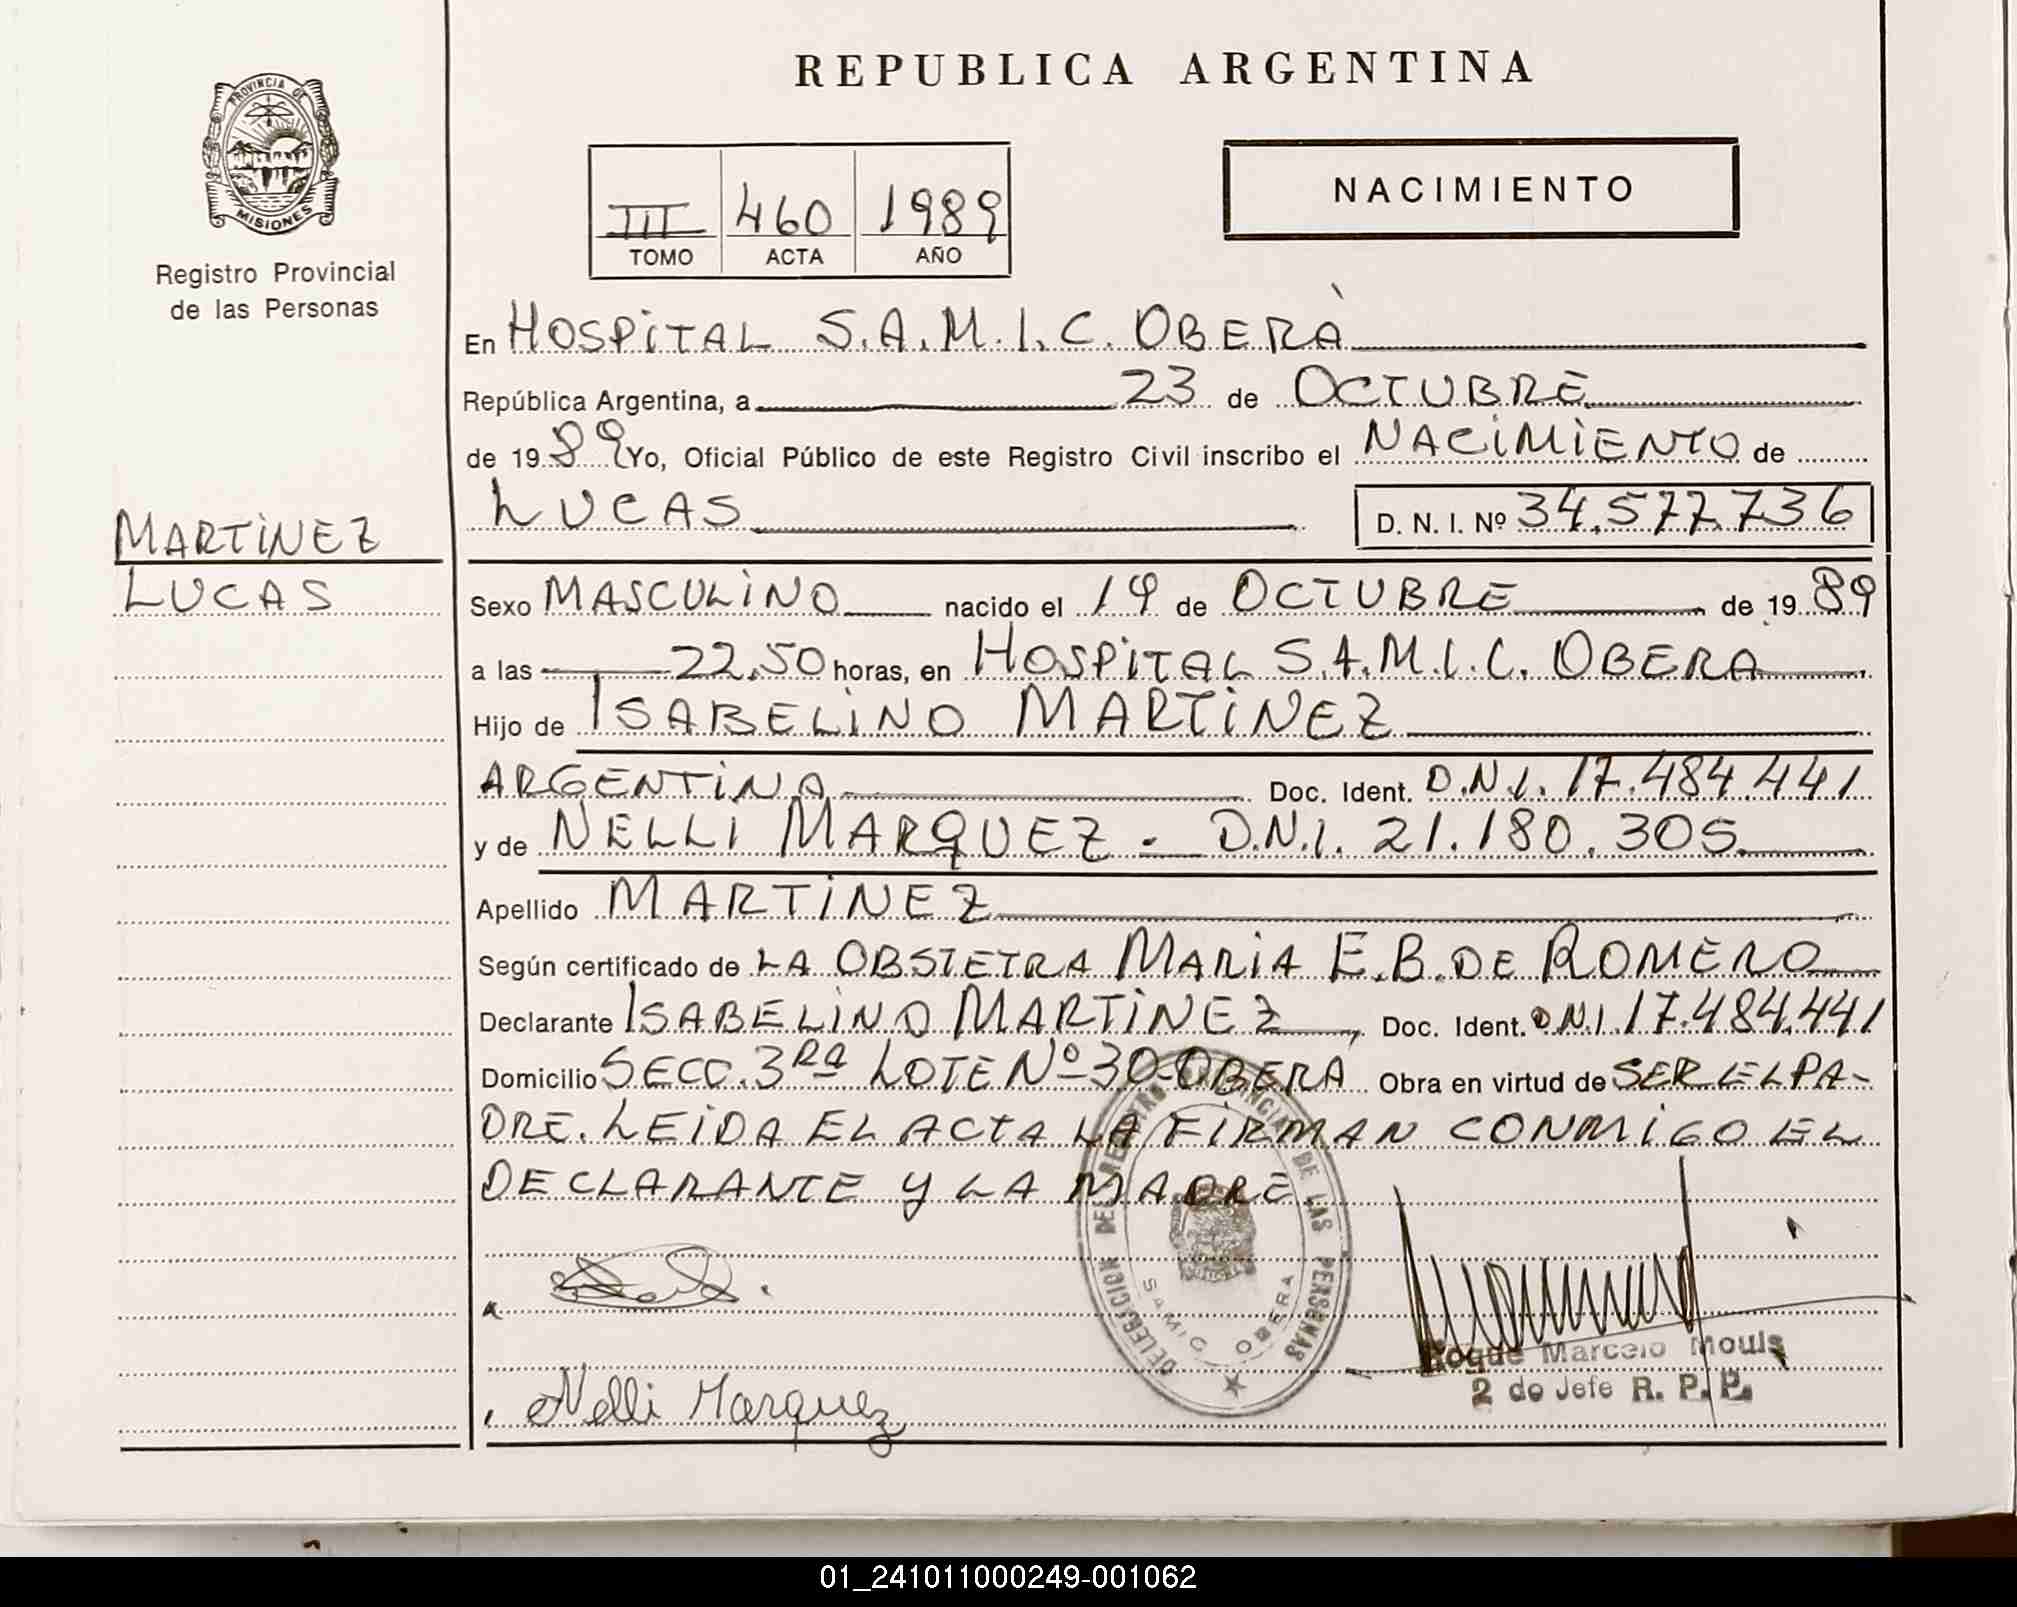 REPUBLICA ARGENTINA
PROVINCIA DE
MISIONES
Registro Provincial
de las Personas
NACIMIENTO
III 460 1989
TOMO ACTA AÑO
En HOSPITAL S.A.M.I.C. OBERÀ
República Argentina, a 23 de OCTUBRE
de 1989 Yo, Oficial Público de este Registro Civil inscribo el NACIMIENTO de
LUCAS D. N. I. Nº 34.577.736
MARTINEZ
LUCAS
Sexo MASCULINO nacido el 19 de OCTUBRE de 1989
a las 22,50 horas, en HOSPITAL S.A.M.I.C. OBERA
Hijo de ISABELINO MARTINEZ
ARGENTINA Doc. Ident. D.N.I. 17.484.441
y de NELLI MARQUEZ - D.N.I. 21.180.305
Apellido MARTINEZ
Según certificado de LA OBSTETRA MARIA E.B. DE ROMERO
Declarante ISABELINO MARTINEZ, Doc. Ident. D.N.I. 17.484.441
Domicilio SECC. 3RA LOTE Nº 30-OBERA Obra en virtud de SER EL PA-
DRE. LEIDA EL ACTA LA FIRMAN CONMIGO EL
DECLARANTE Y LA MADRE
DELEGACION DEL REGISTRO PROVINCIAL DE LAS PERSONAS
SAMIC OBERA
Roque Marcelo Mouls
2 do Jefe R. P. P.
Nelli Marquez
01_241011000249-001062